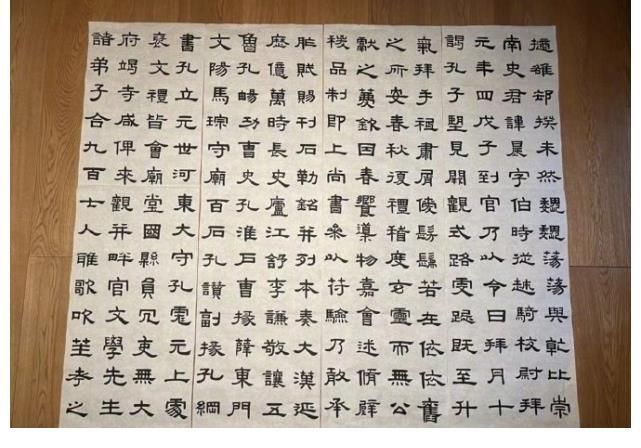 摘雒却揆未然魏魏蕩蕩與乾比崇
南史君諱晨字伯時從越騎校尉拜
元年四戊子到官乃以令日拜月十
謁孔子望見闕觀式路虔跽既至升
氣拜手祗肅屑僾髣髴若在依依舊
之所安春秋復禮稽度玄靈而無公
獻之薦欽因春饗導物嘉會述脩辟
稷品制即上尚書參以符驗乃敢承
胙賦賜刊石勒銘并列本奏大漢延
歷億萬時長史廬江舒李謙敬讓五
魯孔暢功曹史孔淮戶曹掾薛東門
文陽馬琮守廟百石孔讚副掾孔綱
書孔立元世河東大守孔彪元上處
褒文禮皆會廟堂國縣員冗吏無大
府竦寺咸俾來觀并畔官文學先生
諸弟子合九百士人雅歌吹笙考之